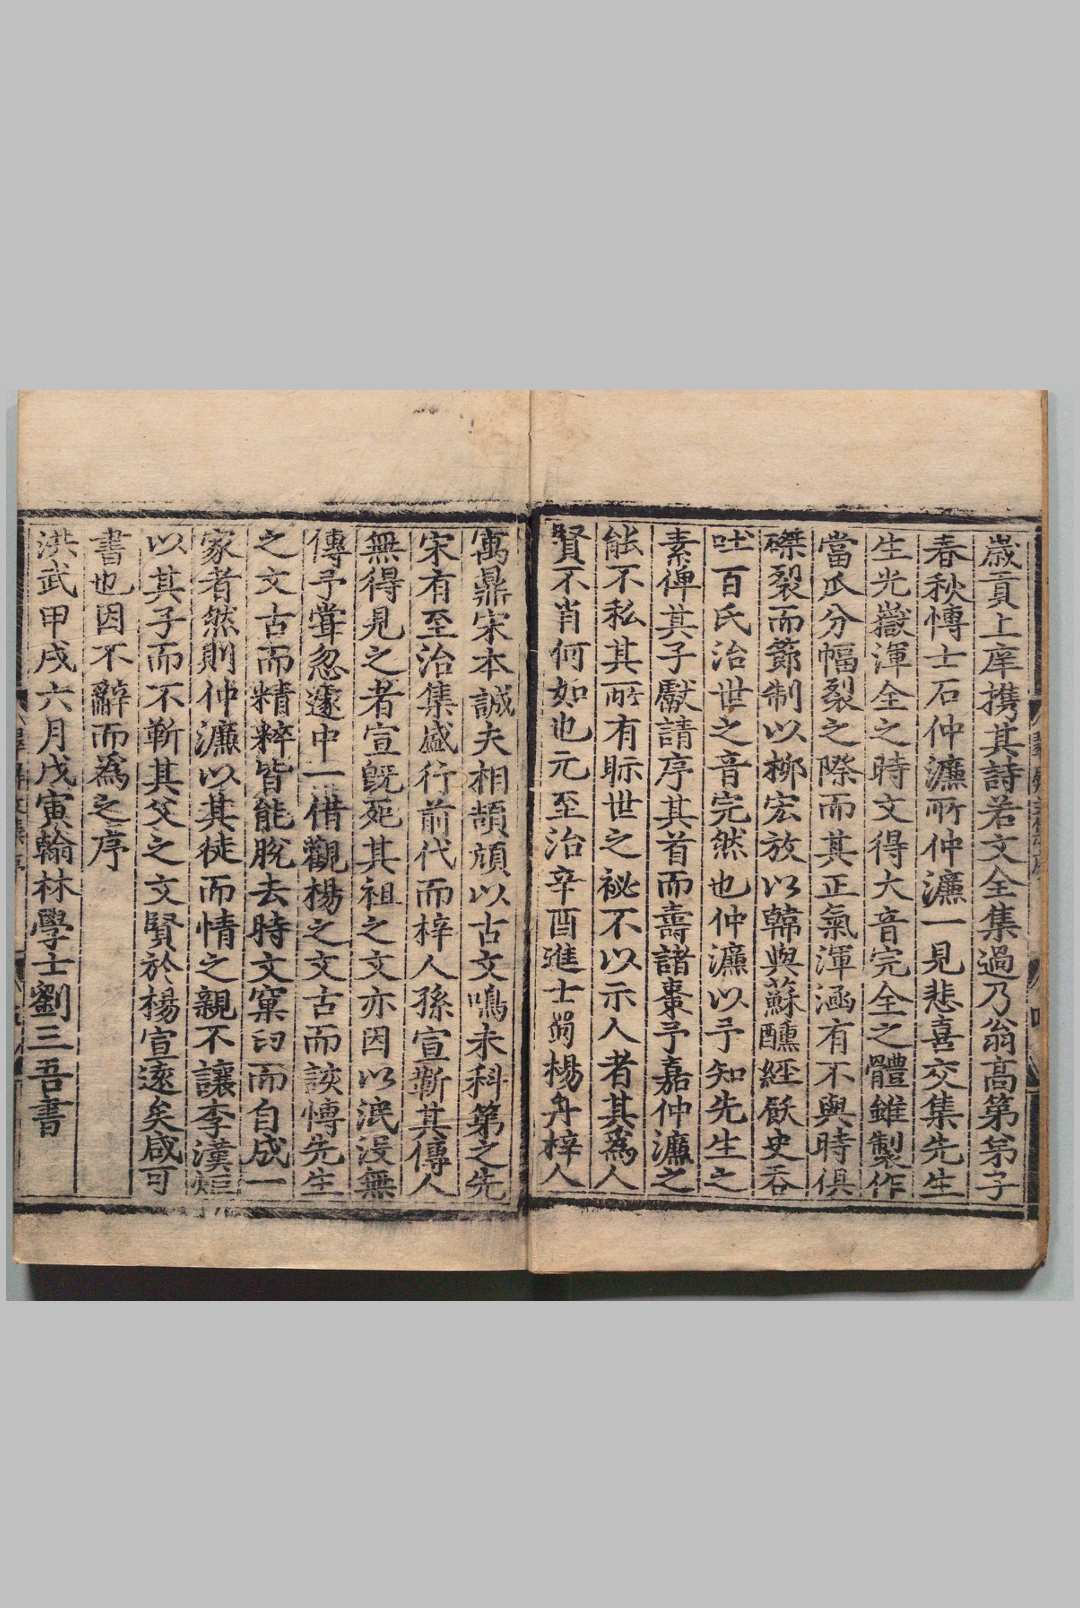 歲貢上庠携其詩若文全集過乃翁高第弟子
春秋博士石仲濂所仲濂一見悲喜交集先生
生光嶽渾全之時文得大音完全之體雖製作
當瓜分幅裂之際而其正氣渾涵有不與時俱
磔裂而節制以柳宏放以韓與蘇醺經飫史吞
吐百氏治世之音完然也仲濂以予知先生之
素俾其子獻請序其首而壽諸棗予嘉仲濂之
能不私其所有眎世之祕不以示人者其為人
賢不肖何如也元至治辛酉進士蜀楊舟梓人
寓鼎宋本誠夫相頡頏以古文鳴未科第之先
宋有至治集盛行前代而梓人孫宣蘄其傳人
無得見之者宣旣死其祖之文亦因以泯沒無
傳予嘗忽遽中一借觀楊之文古而談博先生
之文古而精粹皆能脫去時文窠臼而自成一
家者然則仲濂以其徒而情之親不讓李漢烜
以其子而不蘄其父之文賢於楊宣遠矣咸可
書也因不辭而為之序
洪武甲戌六月戊寅翰林學士劉三吾書